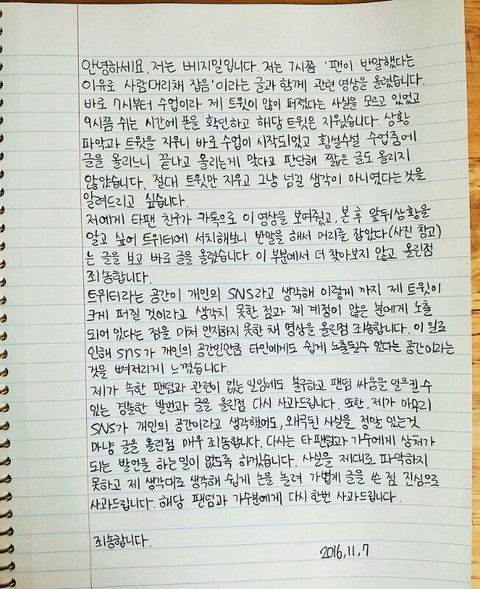 안녕하세요, 저는 베지밀입니다. 저는 7시쯤 '팬이 반말했다는
이유로 사람머리채 잡음'이라는 글과 함께 관련 영상을 올렸습니다.
바로 7시부터 수업이라 제 트윗이 많이 퍼졌다는 사실을 모르고 있었고
9시쯤 쉬는 시간에 폰을 확인하고 해당 트윗은 지웠습니다. 상황
파악과 트윗을 지우니 바로 수업이 시작되었고 횡설수설 수업중에
글을 올리느니 끝나고 올리는게 맞다고 판단해 짧은 글도 올리지
않았습니다. 절대 트윗만 지우고 그냥 넘길 생각이 아니였다는 것을
알려드리고 싶습니다.
저에게 타팬 친구가 카톡으로 이 영상을 보여줬고, 본 후 앞뒤상황을
알고 싶어 트위터에 서치해보니 반말을 해서 머리를 잡았다(사진 참고)
는 글을 보고 바로 글을 올렸습니다. 이 부분에서 더 찾아보지 않고 올린점
죄송합니다.
트위터라는 공간이 개인의 SNS라고 생각해 이렇게 까지 제 트윗이
크게 퍼질 것이라고 생각치 못한 점과 제 계정이 많은 분에게 노출
되어 있다는 점을 마저 인지하지 못한 채 영상을 올린점 죄송합니다. 이 일로
인해 sns가 개인의 공간인만큼 타인에게도 쉽게 노출될수 있다는 공간이라는
것을 뼈저리게 느꼈습니다.
제가 속한 팬덤과 관련이 없는 일임에도 불구하고 팬덤 싸움을 일으킬 수
있는 경솔한 발언과 글을 올린점 다시 사과드립니다. 또한, 제가 아무리
SNS가 개인의 공간이라고 생각했어도, 왜곡된 사실을 정말 있는것
마냥 글을 올린점 매우 죄송합니다. 다시는 타팬덤과 가수에게 상처가
되는 발언을 하는일이 없도록 하겠습니다. 사실을 제대로 파악하지
못하고 제 생각대로 생각해 쉽게 논을 놀려 가볍게 글을 쓴 점 진심으로
사과드립니다. 해당 팬덤과 가수분에게 다시 한번 사과드립니다.
죄송합니다.
2016.11.7